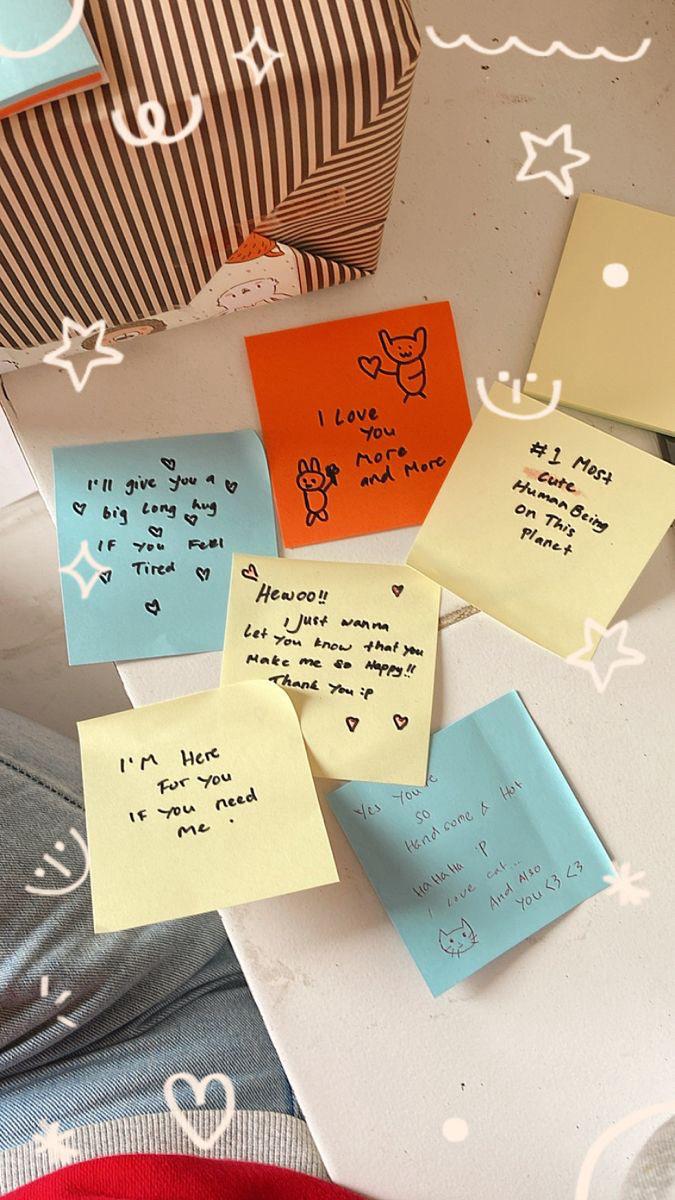 I Love
You
More
and More
I'll give you a
big Long hug
IF you Feel
Tired
#1 Most
cute
Human Being
On This
Planet
Hewoo!!
I Just wanna
Let You know that you
Make me so Happy!!
Thank You :p
I'M Here
For You
IF You need
Me .
Yes You're
so
Handsome & Hot
HaHaHa :P
I Love cat...
And Also
You <3 <3